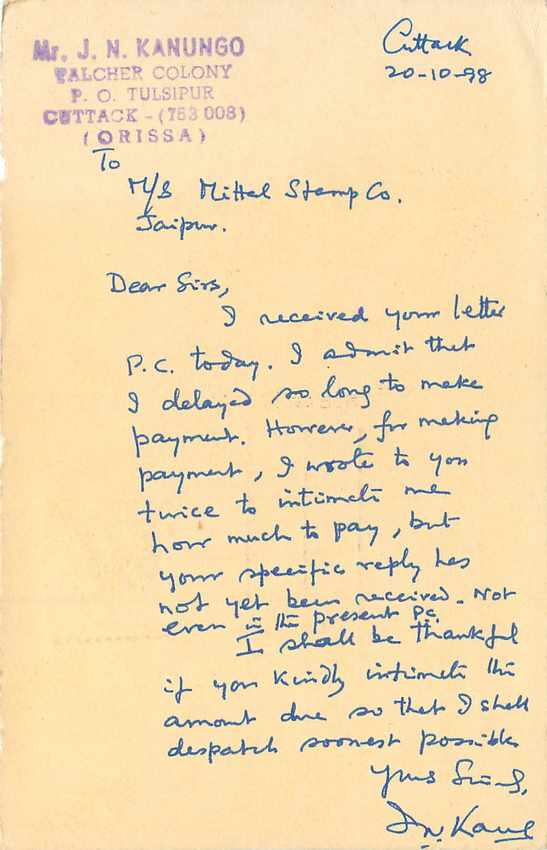 Mr. J. N. KANUNGO
TALCHER COLONY
P. O. TULSIPUR
CUTTACK - (753 008)
( ORISSA )
Cuttack
20-10-98
To
M/S Mittal Stamp Co.
Jaipur.
Dear Sirs,
I received your letter
P.C. today. I admit that
I delayed so long to make
payment. However, for making
payment, I wrote to you
twice to intimate me
how much to pay, but
your specific reply has
not yet been received. Not
even in the present P.C.
I shall be thankful
if you kindly intimate the
amount due so that I shall
despatch soonest possible
Yours